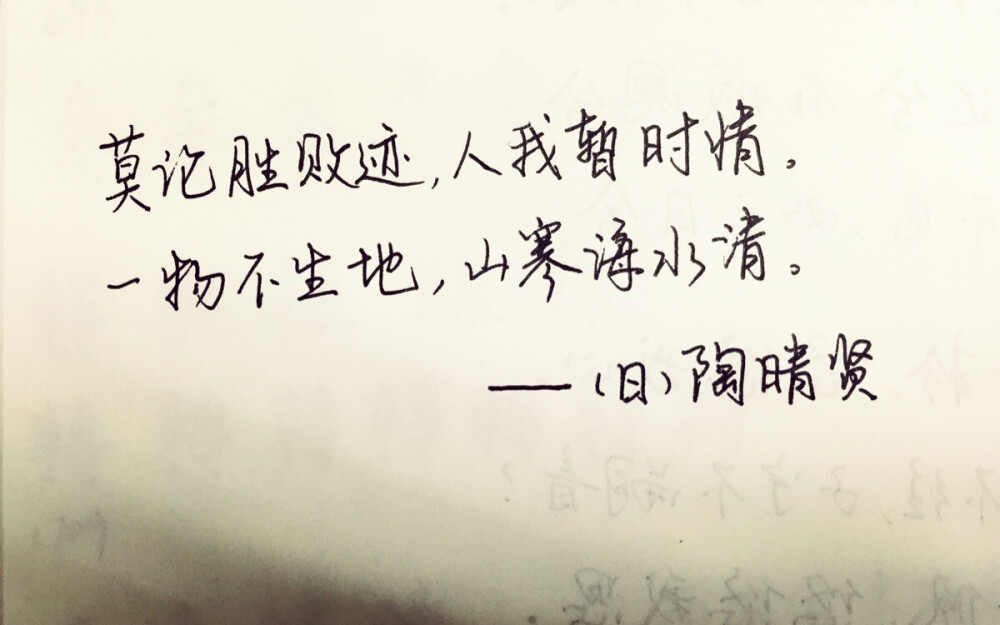 莫论胜败迹,人我暂时情。
一物不生地,山寒海水清。
——(日)陶晴贤